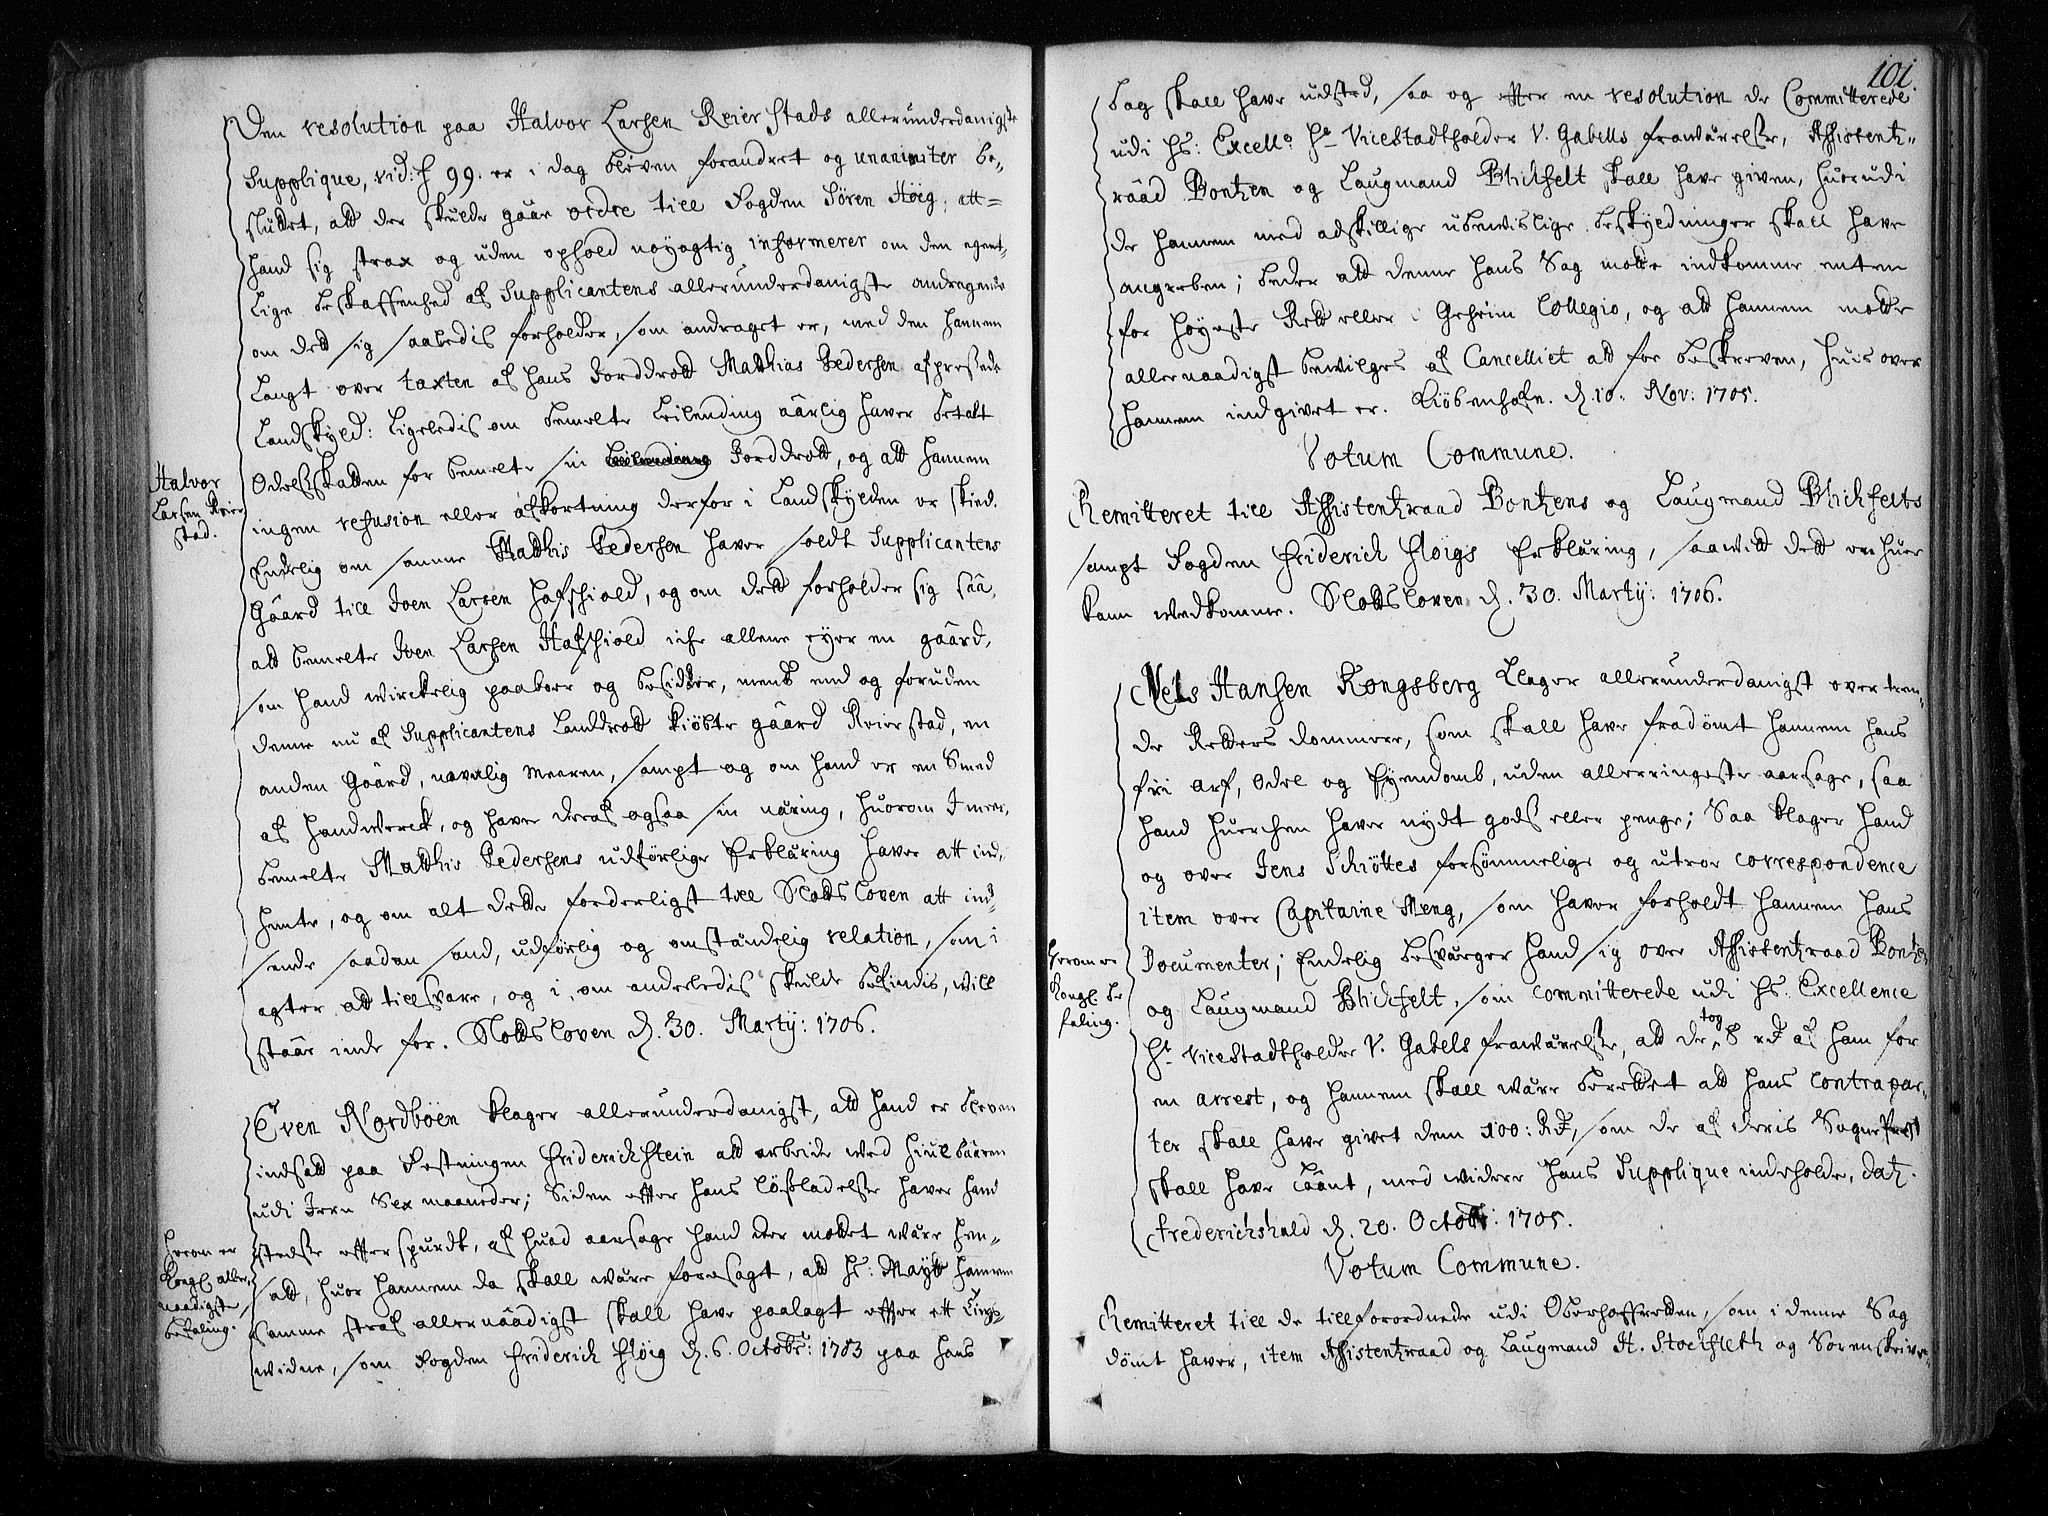 Den resolution paa Halvor Larsen Reierstads allerunderdanigste
Supplique, vid: f 99. er i dag bleven forandret og unanimiter be-
sluttet, att der skulde gaae ordre till Fogden Sören Höig, att
hand sig strax og uden ophold nöyagtig informerer om den egent-
lige beskaffenhed af Supplicantens allerunderdanigste andragende
om dett sig saaledis forholder, som andraget er, med den hannem
langt over taxten af hans Jorddrott Matthias Pedersen afpressede
Landskyld: ligeledis om bemelte Leilending aarlig haver betalt
Odelsskatten for bemelte sin Jorddrott, og att hannem
ingen refusion eller afkortning derfor i Landskylden er skied.
Endelig om samme Matthis Pedersen haver soldt Supplicantens
Gaard till Iven Larsen Hafschiold, og om dett forholder sig saa,
att bemelte Iven Larsen Hafschiold iche allene eyer en gaard,
som hand wirckelig paaboer og besidder, mens end og foruden
denne nu af Supplicantens Landdrott kiöbte gaard Reierstad, en
anden Gaard, navnlig Meeren, sampt og om hand er en Smed
af handwerck, og haver deraf ogsaa sin næring, huorom I meer-
bemelte Matthis Pedersens udförlige Erklæring haver att ind-
hente, og om alt dette forderligst till Slottsloven att ind-
sende saadan sand, udförlig og omstændelig relation, som i
agter att tillsvare, og i, om anderledis skulde befindis, will
staae inde for. Slottsloven d. 30. Martij: 1706.
Halvor
Larsen Reier
stad.
Even Nordböen klager allerunderdanigst, att hand er bleven
indsatt paa Festningen Friderichstein att arbeide wed hiulbaaren
udi Jern Sex maaneder; Siden efter hans lösladelse haver hand
stedse efterspurdt, af huad aarsage hand der mottet være hen-
satt, huor hannem da skall være foresagt, att hs: Maytt hannem
samme straf allernaadigst skall have paalagt efter ett Tings-
widne, som Fogden Friderich Höig d. 6. Octobr: 1703 paa hans
herom er
Kongl. aller-
naadigste
befaling.
101.
bag skall have udsted, saa og efter en resolution de Committerede
udi hs: Excell: Hr Vicestadtholder V. Gabells frawærelse, Assistentz-
raad Bontzen og Laugmand Blichfelt skall have given, huorudi
de hannem med adskillige ubewislige beskyldninger skall have
angreben; beder att denne hans Sag motte indkomme enten
for Höyeste Rett eller i Geheim Collegio, og att hannem motte
allernaadigst bewilges af Cancelliet att faa beskreven, huis over
hannem indgivet er. Kiöbenhafn. d. 10. Nov: 1705.
Votum Commune.
Remitteret till Assistentzraad Bontzens og Laugmand Blichfelts
sampt Fogden Friderich Höigs Erklæring, saawitt dett en huer
kann wedkomme. Slottsloven d. 30. Martij: 1706.
Nels Hansen Kongsberg klager allerunderdanigst over tren-
de Retters Dommere, som skall have fradömt hannem hans
frii Arf, Odel og Eyendomb, uden allerringeste aarsage, saa
hand huerchen haver nydt gods eller penge; Saa klager hand
og over Jens Schiöttes forsömmelige og utroe correspondence
item over Capitaine Meng, som haver forholdt hannem hans
Documenter; Endelig besværger hand sig over Assistentzraad Bontzen
og Laugmand Blichfelt, som committerede udi hs. Excellence
Hr Vicestadtholder V. Gabels frawærelse, att de tog 8 rd af ham for
en arrest, og hannem skall være berettet att hans Contrapar-
ter skall have givet dem 100: Rd, som de af deris Sogneprest
skall have laant, med widere hans Supplique indeholder, dat:
Frederichshald d. 20. Octobr: 1705.
Votum Commune.
herom er
Kongl. be
faling.
Remitteret till de tillforordnede udi Oberhoffretten, som i denne Sag
dömt haver, item Assistentzraad og Laugmand H. Stochfleth og Sorenskrive-